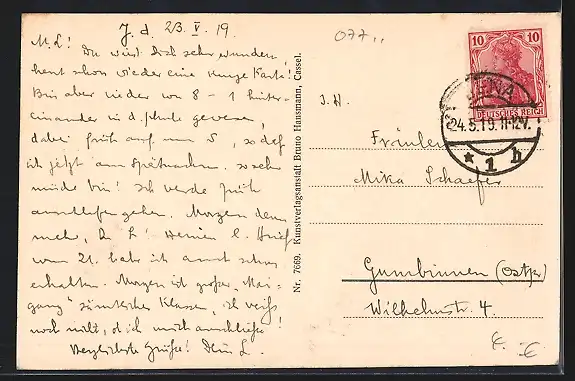 J. d. 23. V. 19.
M. L! Du wirst Dich sehr wundern,
heut schon wieder eine Karte!
Bin aber wieder von 8 - 1 hinter-
einander in d. Schule gewesen,
dabei früh auf um 5, so daß
ich jetzt am Spätnachm. so sehr
müde bin! Ich werde früh
gehen. Morgen dann
mehr, D. L! Deinen l. Brief
vom 21. hab ich
erhalten. Morgen ist großer Mai-
gang sämtlicher Klassen, ich weiß
noch nicht, ob ich mich anschließe!
Herzlichste Grüße! Dein L.
Nr. 7669. Kunstverlagsanstalt Bruno Hansmann, Cassel.
077
10 10
DEUTSCHES REICH
JENA
24.5.19. 11-12V.
* 1 h
J. H.
Fräulein
Mika Schaefer
Gumbinnen (Ostpr)
Wilhelmstr. 4.